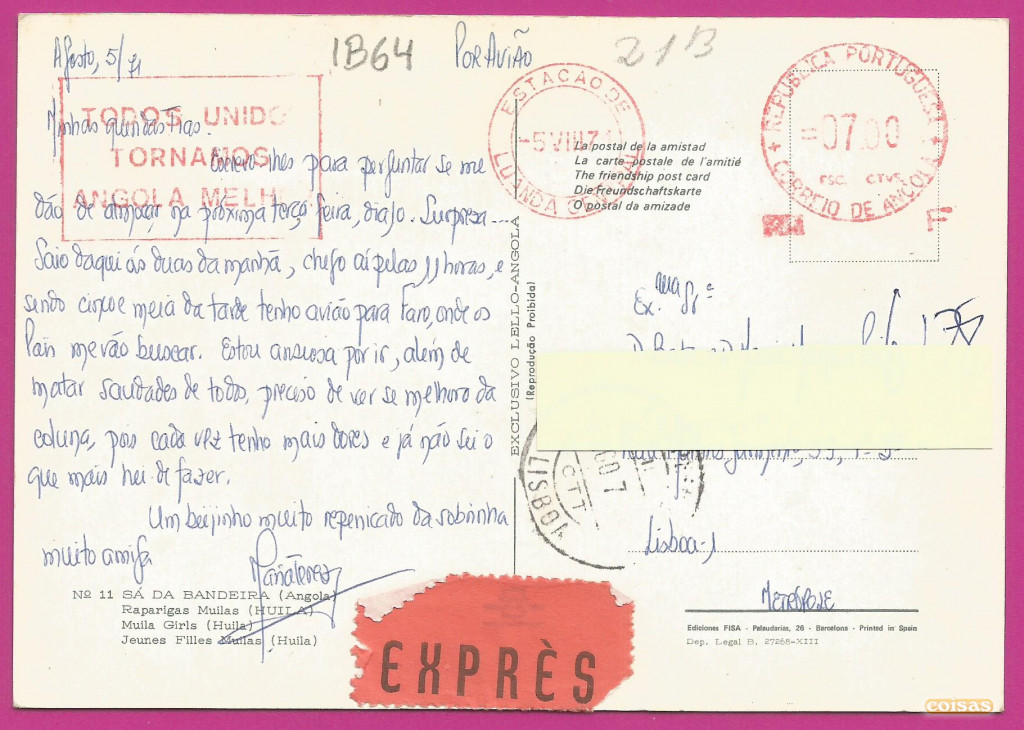 Agosto, 5/71
1B64
POR AVIÃO
21B
TODOS UNIDO
TORNAMOS
ANGOLA MELHO
ESTAÇÃO DE
-5 VIII 71
LUANDA
REPÚBLICA PORTUGUESA
=07.00
ESC. CTVS.
CORREIO DE ANGOLA
F
Minhas queridas Tias.
Escrevo-lhes para perguntar se me
dão de almoçar, na próxima terça feira, dia 10. Surpresa...
Saio daqui ás duas da manhã, chego aí pelas 11 horas, e
sendo cinco e meia da tarde tenho avião para Faro, onde os
Pais me vão buscar. Estou ansiosa por ir, além de
matar saudades de todos, preciso de ver se melhoro da
coluna, pois cada vez tenho mais dores e já não sei o
que mais hei-de fazer.
Um beijinho muito repenicado da sobrinha
muito amiga
Nº 11 SÁ DA BANDEIRA (Angola)
Raparigas Muilas (HUILA)
Muila Girls (Huila)
Jeunes Filles Muilas (Huila)
EXCLUSIVO LELLO-ANGOLA
(Reprodução Proibida)
La postal de la amistad
La carte postale de l'amitié
The friendship post card
Die Freundschaftskarte
O postal da amizade
Ex.ma Sr.ª
LISBOA
CTT
Lisboa-1
METRÓPOLE
Ediciones FISA - Palaudarias, 26 - Barcelona - Printed in Spain
Dep. Legal B. 27268-XIII
EXPRÈS
coisas